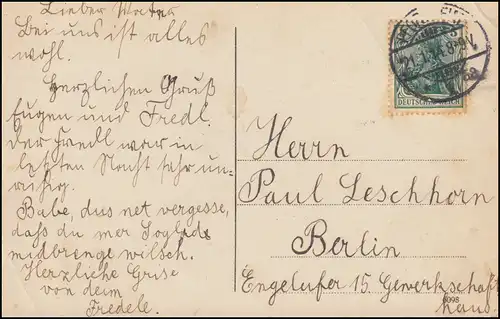 Lieber Vater
Bei uns ist alles
wohl.
Herzlichen Gruß
Eugen und Fredl.
Der Friedl war in
letzten Nacht sehr un-
ruhig.
Babe, dus net vergesse,
dass du mer
midbrenge wilsch.
Herzliche Grise
von deim
Fredele.
DEUTSCHES REICH
Herrn
Paul Leschhorn
Berlin
Engelufer 15. Gewerkschafts
haus.
6098